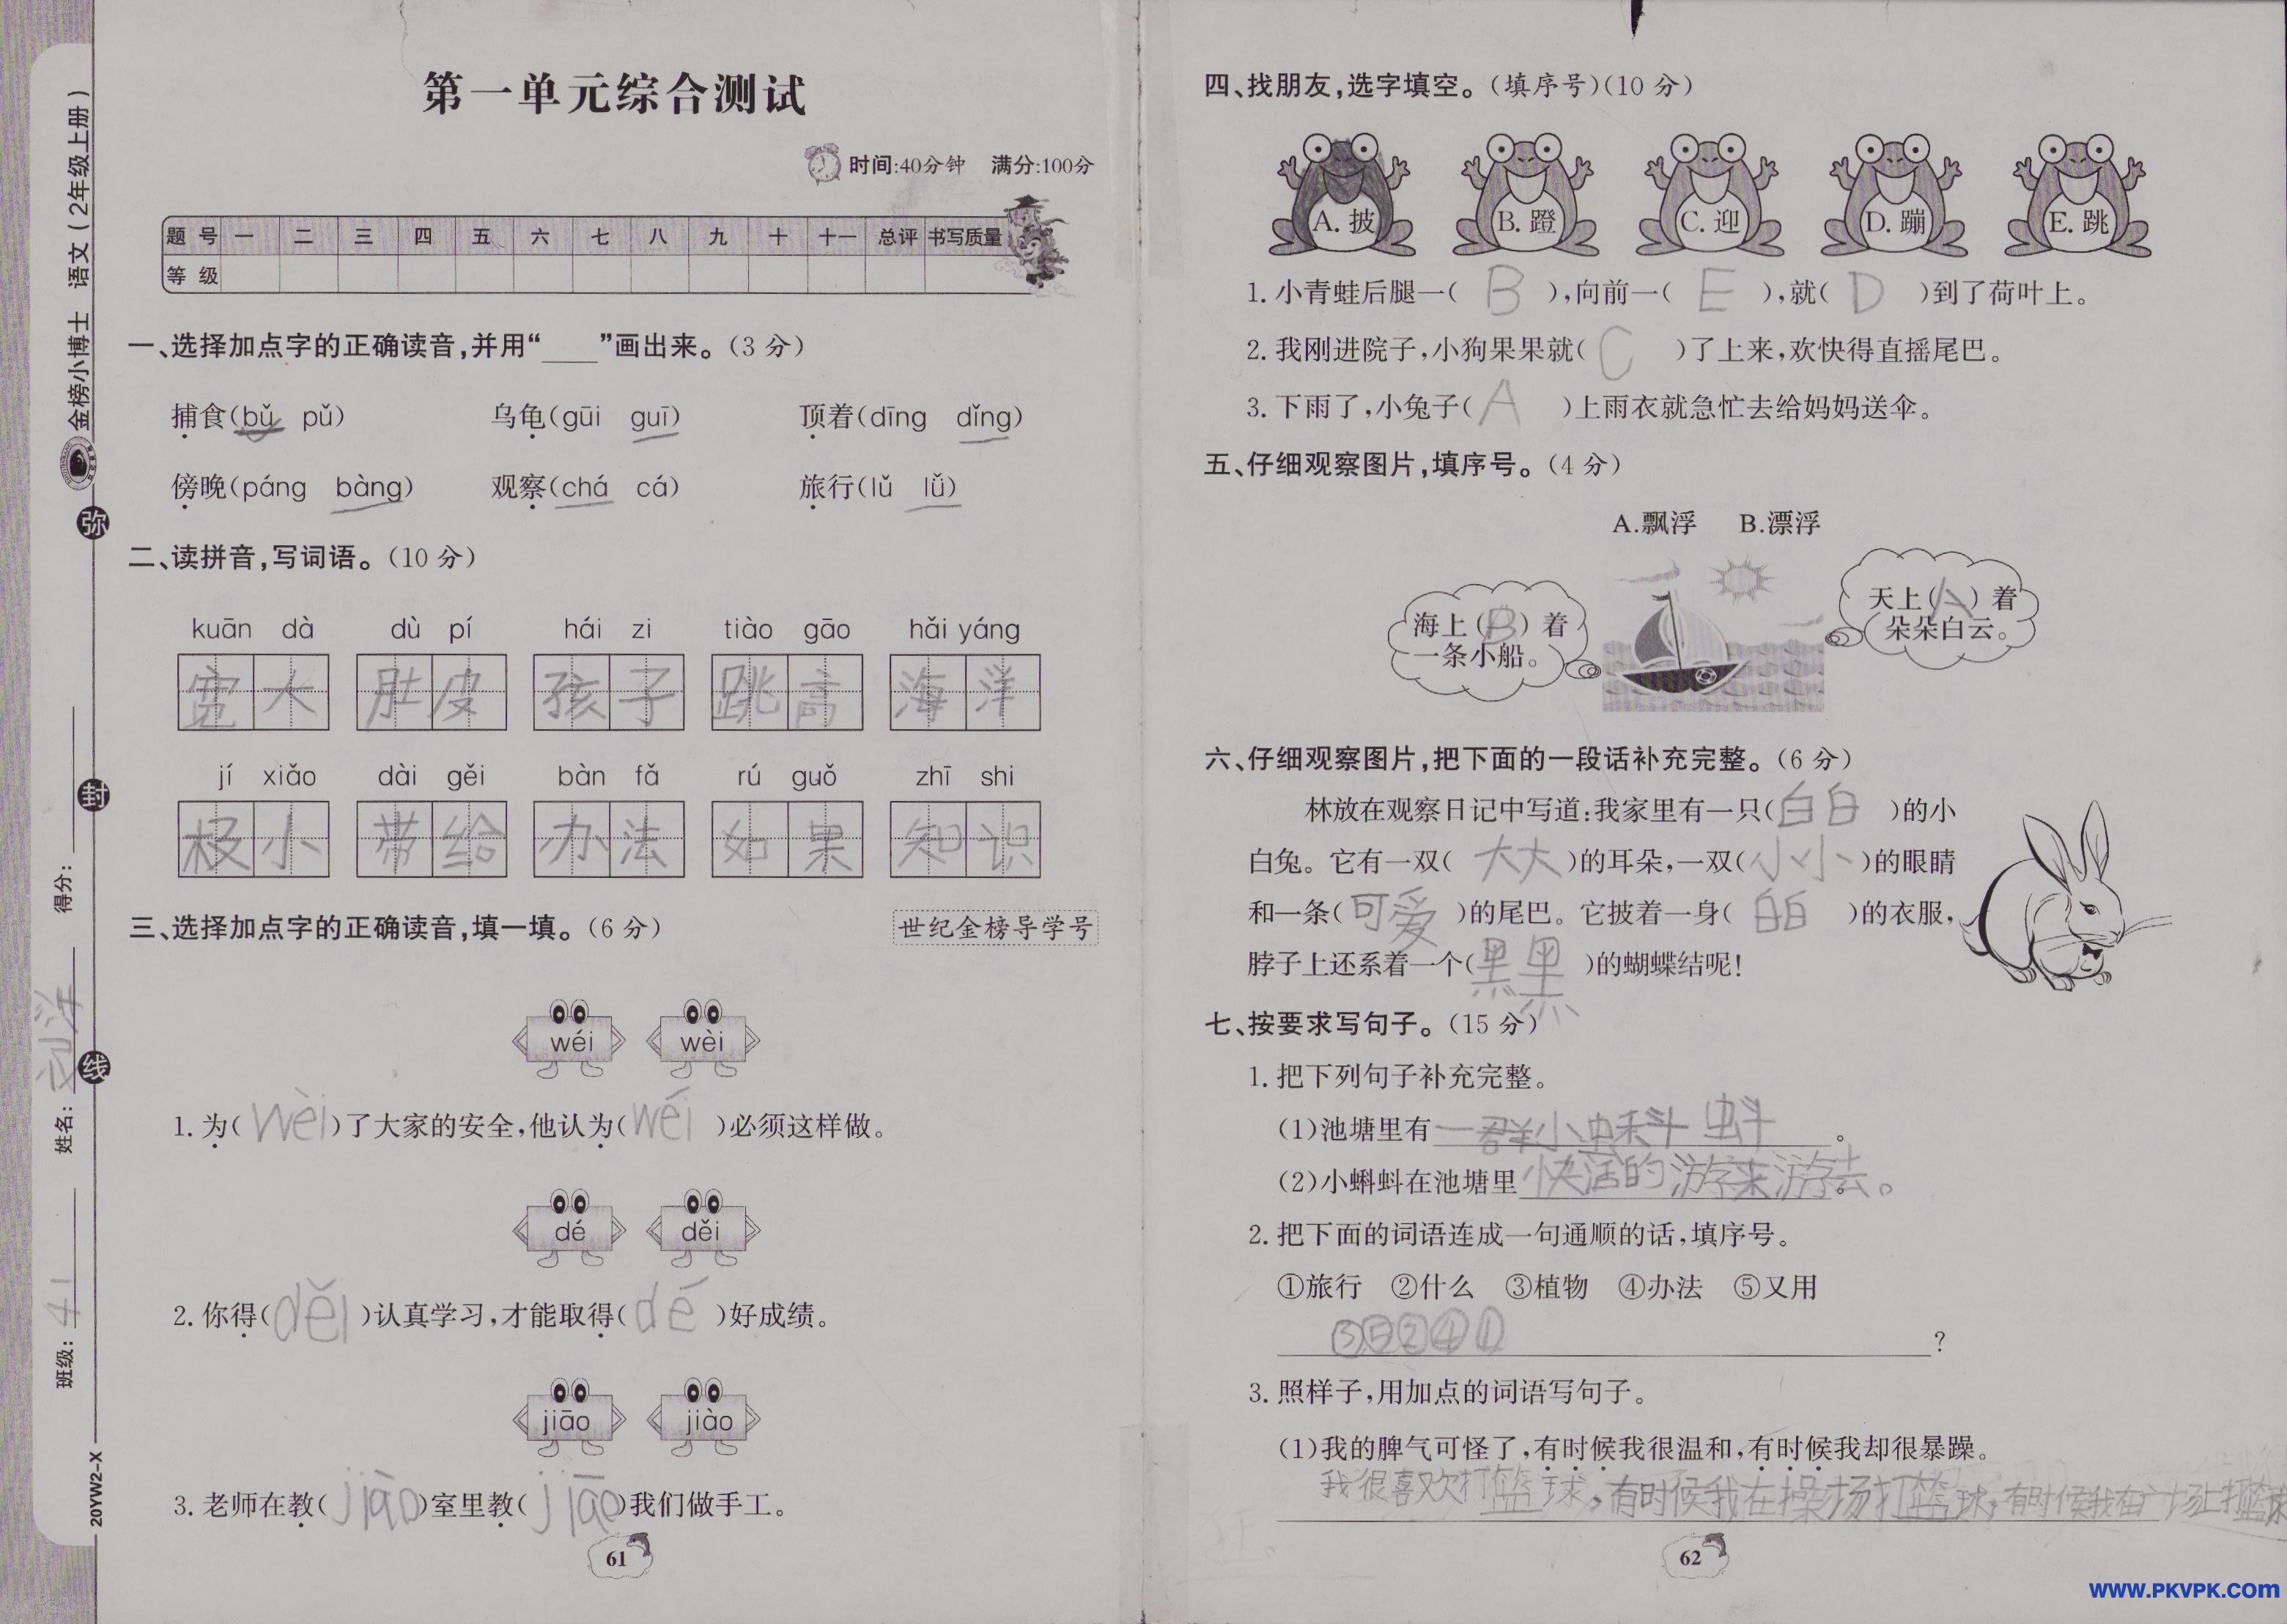 金榜小博士 语文(2年级上册)
弥
封
线
得分:
姓名:
班级: 4 1
20YW2-X
第一单元综合测试
时间:40分钟 满分:100分
题 号 一 二 三 四 五 六 七 八 九 十 十一 总评 书写质量
等 级
一、选择加点字的正确读音,并用“____”画出来。(3 分)
捕食(bǔ pǔ) 乌龟(gūi guī) 顶着(dīng dǐng)
傍晚(páng bàng) 观察(chá cá) 旅行(lǔ lǚ)
二、读拼音,写词语。(10 分)
kuān dà dù pí hái zi tiào gāo hǎi yáng
宽大 肚皮 孩子 跳高 海洋
jí xiǎo dài gěi bàn fǎ rú guǒ zhī shi
极小 带给 办法 如果 知识
三、选择加点字的正确读音,填一填。(6 分) 世纪金榜导学号
wéi wèi
1. 为( wèi )了大家的安全,他认为( wéi )必须这样做。
dé děi
2. 你得( děi )认真学习,才能取得( dé )好成绩。
jiāo jiào
3. 老师在教( jiào )室里教( jiāo )我们做手工。
61
四、找朋友,选字填空。(填序号)(10 分)
A. 披 B. 蹬 C. 迎 D. 蹦 E. 跳
1. 小青蛙后腿一( B ),向前一( E ),就( D )到了荷叶上。
2. 我刚进院子,小狗果果就( C )了上来,欢快得直摇尾巴。
3. 下雨了,小兔子( A )上雨衣就急忙去给妈妈送伞。
五、仔细观察图片,填序号。(4 分)
A.飘浮 B.漂浮
海上( B )着
一条小船。
天上( A )着
朵朵白云。
六、仔细观察图片,把下面的一段话补充完整。(6 分)
林放在观察日记中写道:我家里有一只( 白白 )的小
白兔。它有一双( 大大 )的耳朵,一双( 小小 )的眼睛
和一条( 可爱 )的尾巴。它披着一身( 白白 )的衣服,
脖子上还系着一个( 黑黑 )的蝴蝶结呢!
七、按要求写句子。(15 分)
1. 把下列句子补充完整。
(1)池塘里有一群小蝌蚪。
(2)小蝌蚪在池塘里快活的游来游去。
2. 把下面的词语连成一句通顺的话,填序号。
①旅行 ②什么 ③植物 ④办法 ⑤又用
③⑤②④①?
3. 照样子,用加点的词语写句子。
(1)我的脾气可怪了,有时候我很温和,有时候我却很暴躁。
我很喜欢打篮球,有时候我在操场打篮球,有时候我在广场上打篮球
62
www.PKVPK.com